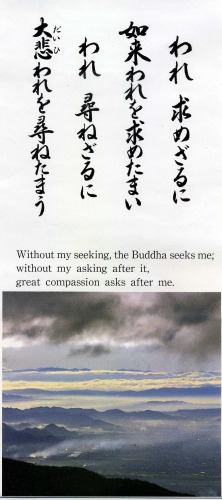 われ 求めざるに
如来われを求めたまい
われ 尋ねざるに
大悲われを尋ねたまう
だいひ
Without my seeking, the Buddha seeks me;
without my asking after it,
great compassion asks after me.